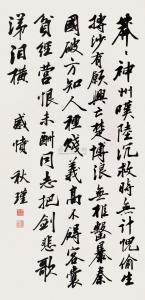 莽々神州嘆陸沉救時無計愧偷生
摶沙有願興亡楚博浪無椎擊暴秦
國破方知人種賤義高不碍客囊
貧經營恨未酬同志把劍悲歌
涕泪橫 感憤 秋瑾